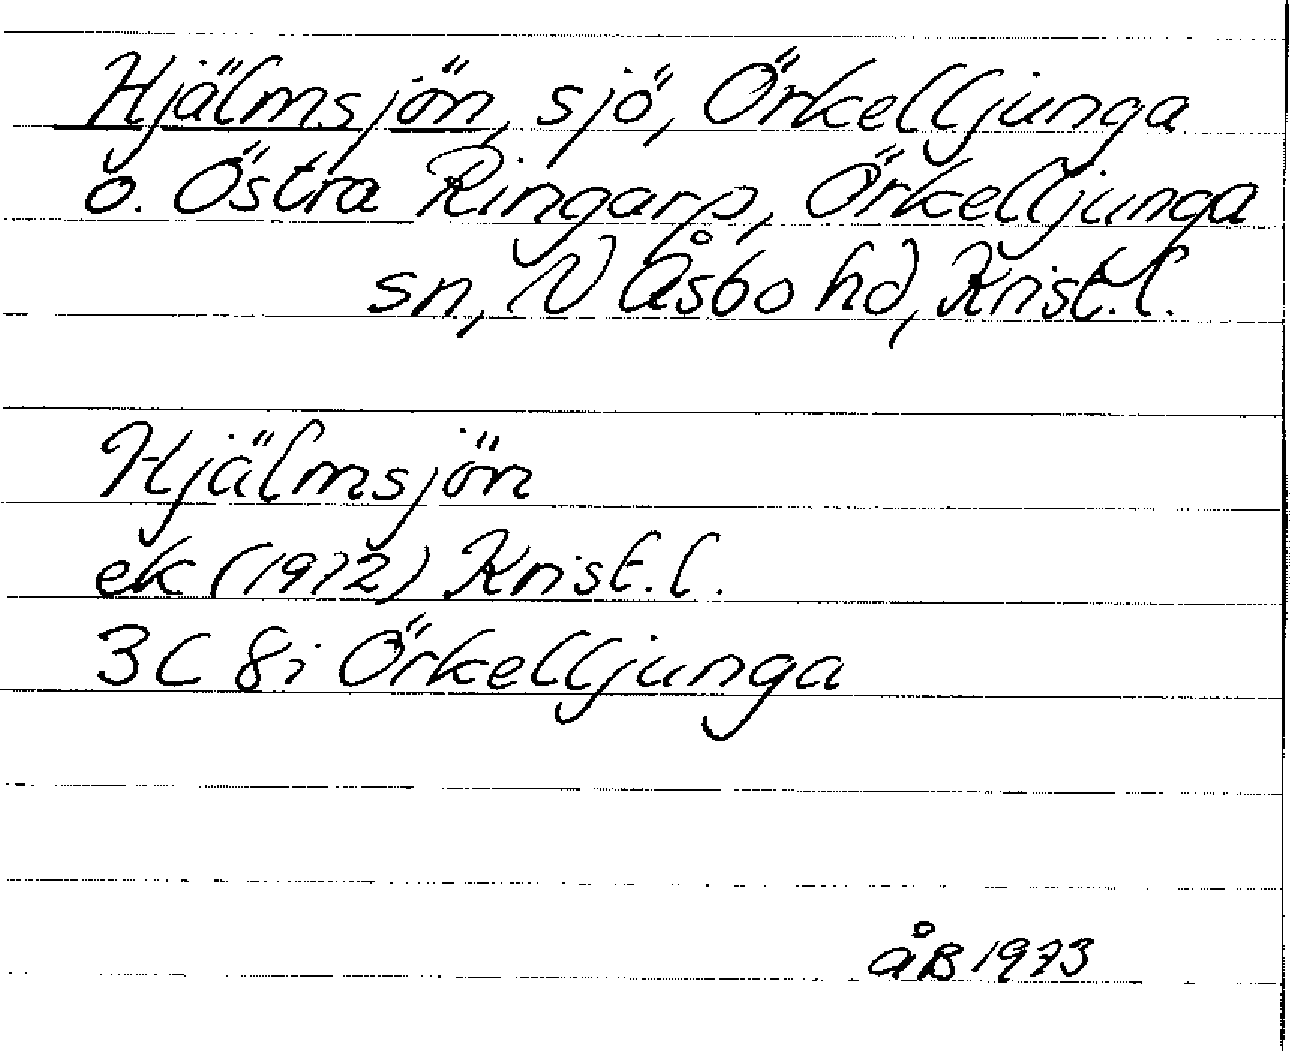 Hjälmsjön, sjö, Örkelljunga
o. Östra Ringarp, Örkelljunga
sn, N Åsbo hd, Krist. l.
Hjälmsjön
ek (1972) Krist. l.
3C 8i Örkelljunga
åB 1973